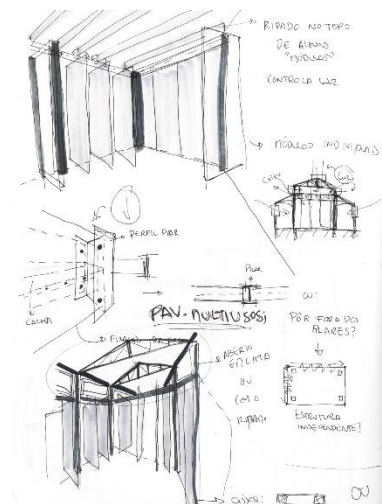 RIPADO NO TOPO
DE ALGUNS
"MÓDULOS"
CONTROLA LUZ
MÓDULOS INDIVIDUAIS
PERFIL
CALHA
PILAR
PAV. MULTIUSOS
OU:
POR FORA DOS
PILARES?
ABERTO
EM CIMA
OU
COM O
RIPADO
ESTRUTURA
INDEPENDENTE?
OU